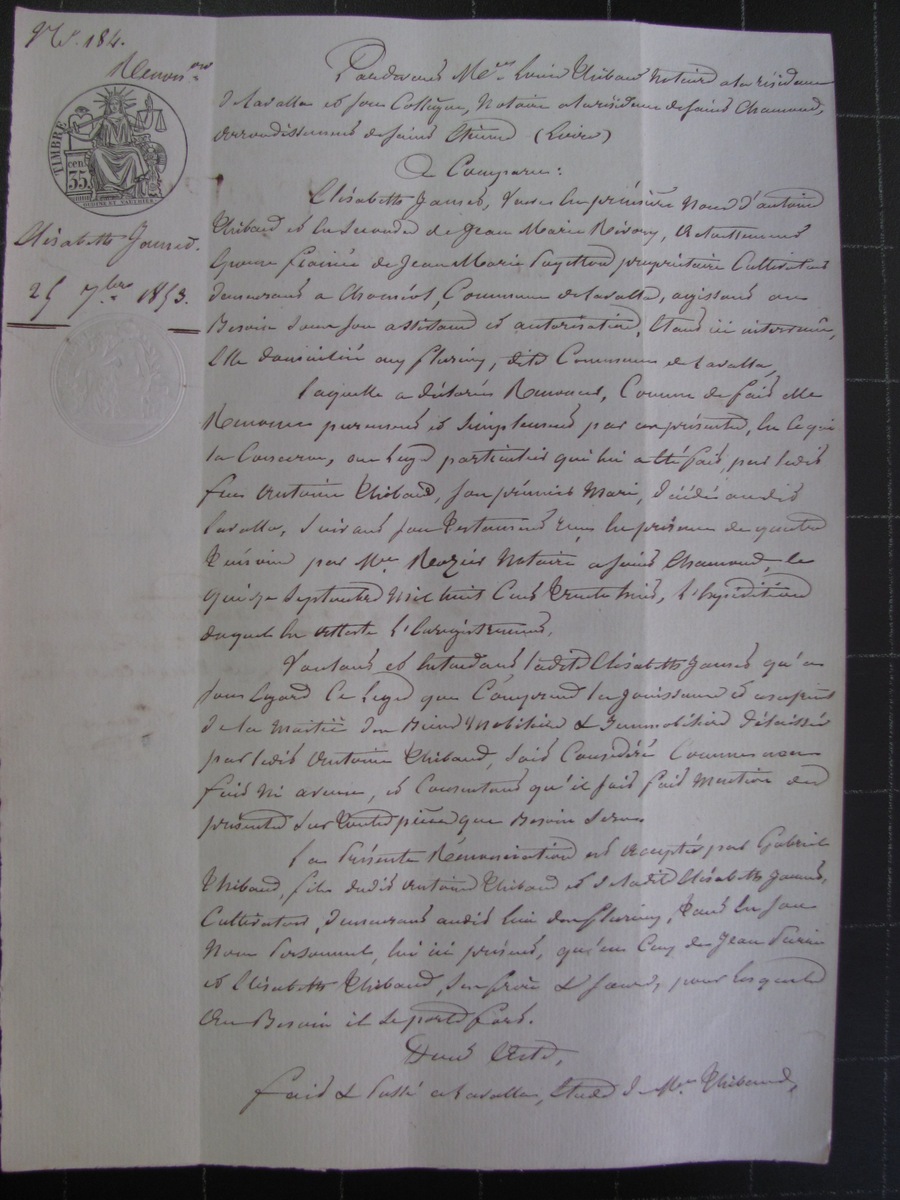 N° 184.
Renon.on
TIMBRE
cen.
35
Elisabeth Jamet.
25 7bre 1853.
Pardevant Me Louis Thibaud Notaire à la résidence
de Lavalla et son Collègue, Notaire à la résidence de Saint Chamond,
arrondissement de Saint Etienne (Loire)
A Comparu:
Elisabeth Jamet, veuve en premières Noces d'antoine
Thibaud et en secondes de Jean Marie Rivory, actuellement
épouse de Jean Marie propriétaire Cultivateur
demeurant à Commune de Lavalla, agissant au
Besoin sous son assistance et autorisation, étant ici intervenu,
Elle domiciliée au Fleurieu, dite Commune de Lavalla,
Laquelle a déclaré Renoncer, Comme de fait elle
Renonce purement et simplement par ces présentes, en ce qui
la Concerne, au Legs particulier qui lui a été fait, par ledit
feu Antoine Thibaud, son premier Mari, décédé audit
Lavalla, Suivant son testament reçu en présence de quatre
témoins par Me Rozier Notaire à Saint Chamond, le
quinze Septembre Mil huit Cent trente huit, l'Expédition
duquel en atteste l'Enregistrement.
Voulant et entendant ladite Elisabeth Jamet qu'à
son égard Ce Legs que Comprend la jouissance et usufruit
de la Moitié des Biens Mobiliers & Immobiliers délaissés
par ledit Antoine Thibaud, soit Considéré Comme non
fait ni avenu, et Consentant qu'il soit fait Mention des
présentes sur toutes pièces que Besoin Sera.
La Présente Renonciation est acceptée par Gabriel
Thibaud, fils dudit Antoine Thibaud et de ladite Elisabeth Jamet,
Cultivateur, demeurant audit lieu du Fleurieu, tant en son
Nom Personnel, lui ici présent, qu'en Ceux de Jean
et Elisabeth Thibaud, ses frère & sœur, pour lesquels
Au Besoin il se porte fort.
Dont Acte,
Fait & Passé à Lavalla, Etude de Me Thibaud,